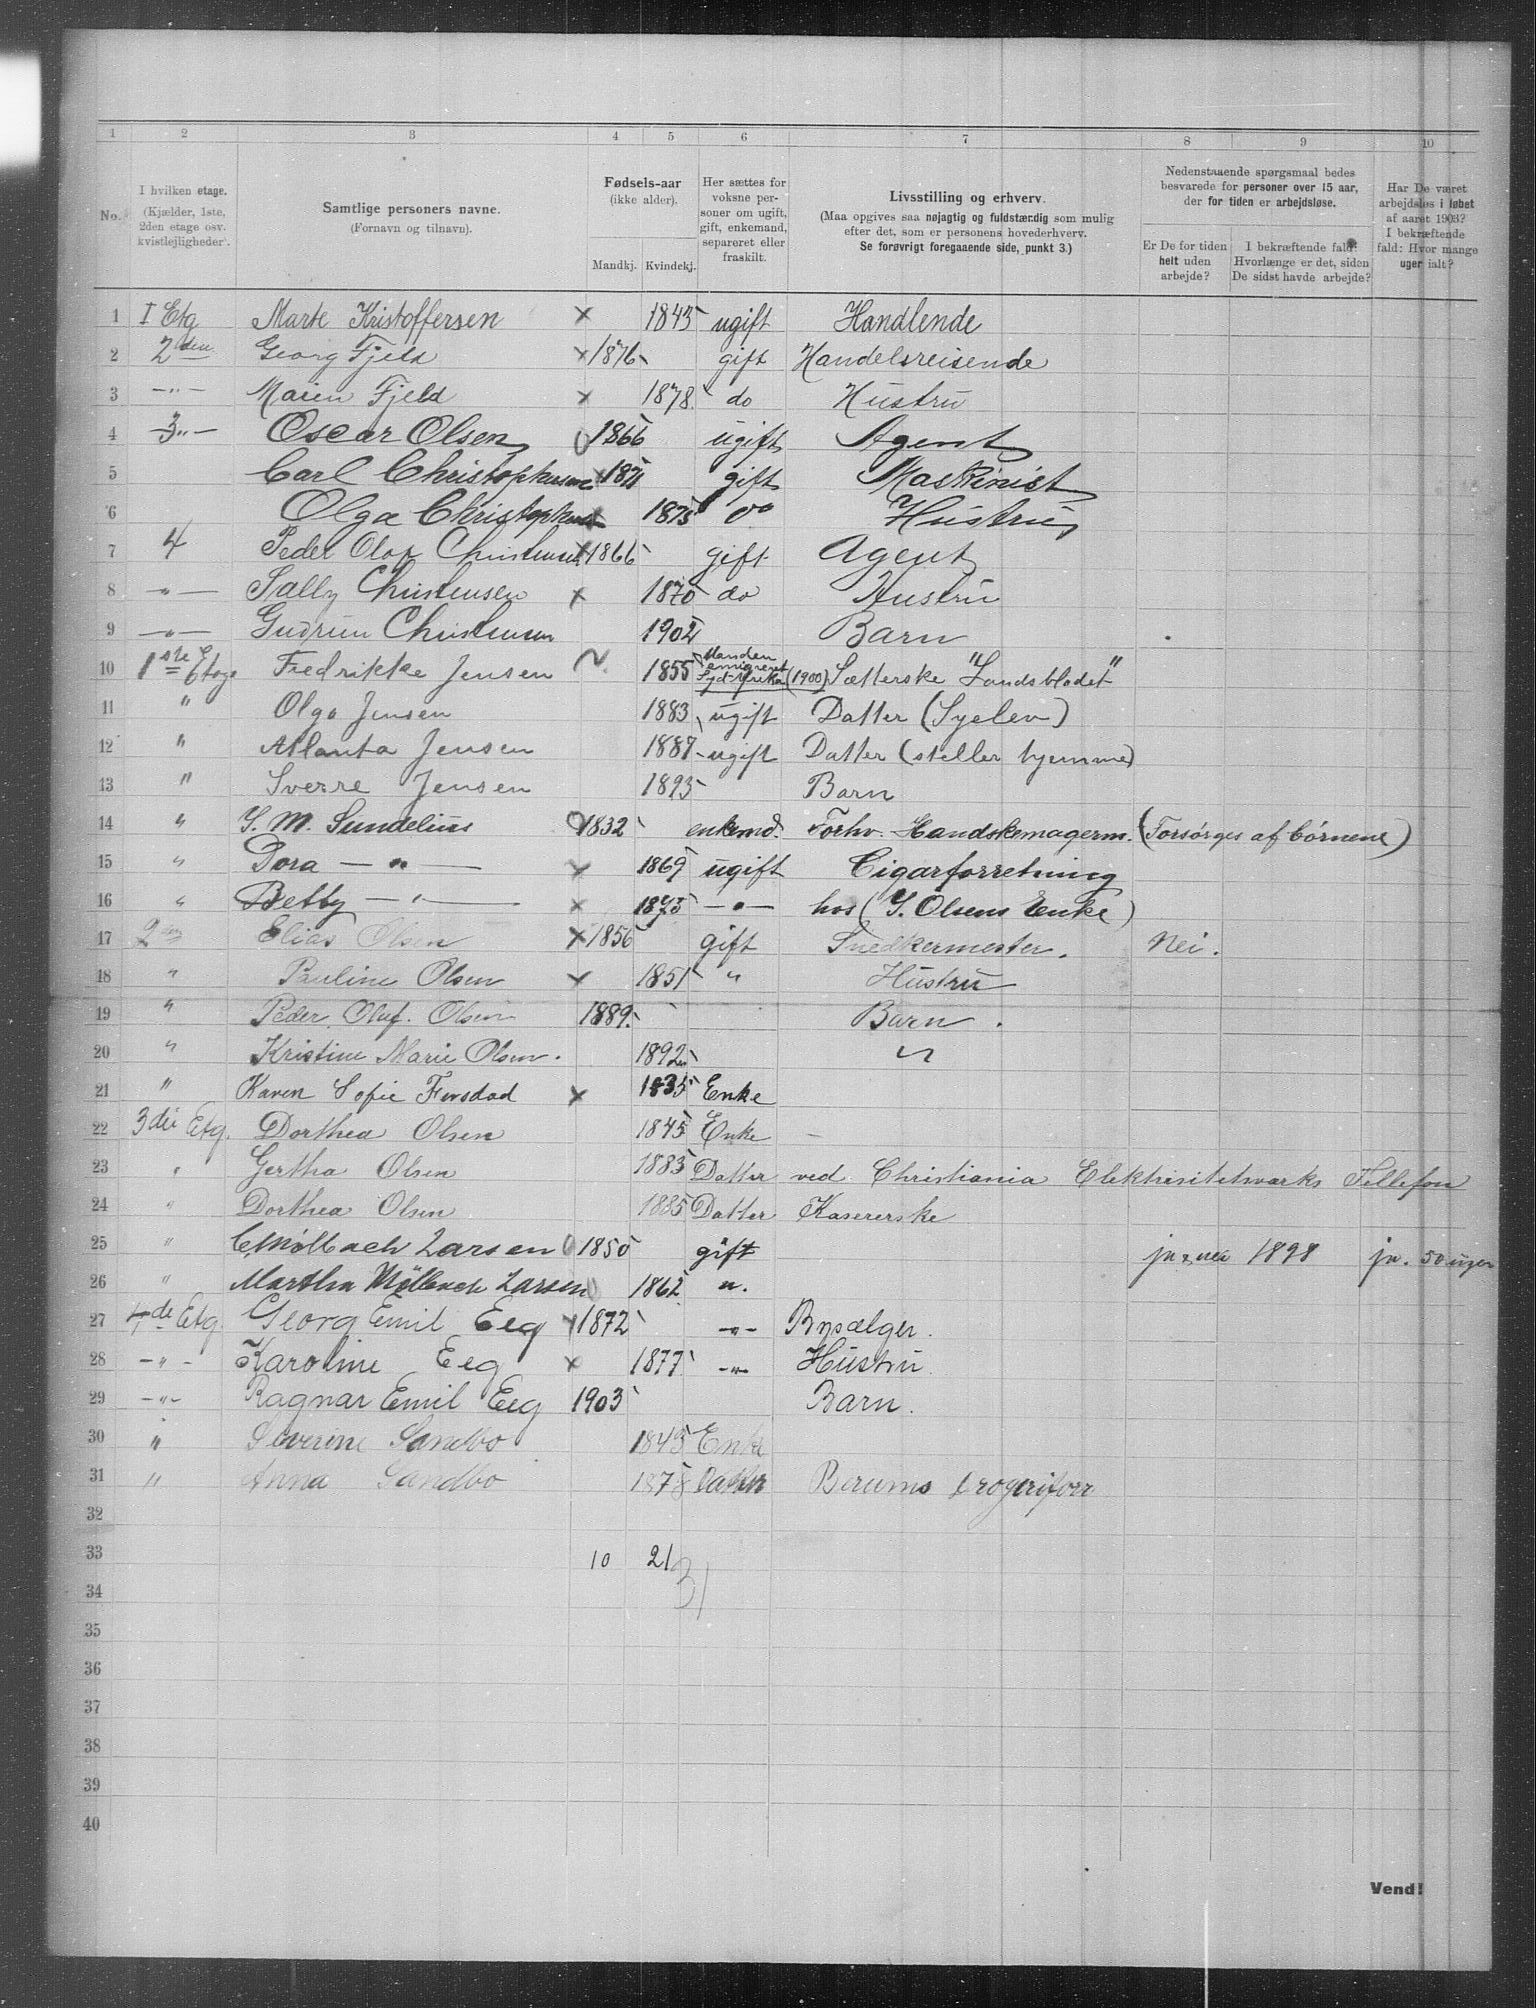 1 2 3 4 5 6 7 8 9 10
No.
I hvilken etage.
(Kjælder, 1ste,
2den etage osv.
kvistlejligheder).
Samtlige personers navne.
(Fornavn og tilnavn).
Fødsels-aar
(ikke alder).
Mandkj. Kvindekj.
Her sættes for
voksne per-
soner om ugift,
gift, enkemand,
separeret eller
fraskilt.
Livsstilling og erhverv.
(Maa opgives saa nøjagtig og fuldstændig som mulig
efter det, som er personens hovederhverv.
Se forøvrigt foregaaende side, punkt 3.)
Nedenstaaende spørgsmaal bedes
besvarede for personer over 15 aar,
der for tiden er arbejdsløse.
Er De for tiden
helt uden
arbejde?
I bekræftende fald:
Hvorlænge er det, siden
De sidst havde arbejde?
Har De været
arbejdsløs i løbet
af aaret 1903?
I bekræftende
fald: Hvor mange
uger ialt?
1 I Etg Marte Kristoffersen × 1845 ugift Handlende
2 2den Georg Fjeld × 1876 gift Handelsreisende
3 —"— Maien Fjeld × 1878 do Hustru
4 3"— Oscar Olsen 0 1866 ugift Agent
5 Carl Christophersen × 1871 gift Maskinist
6 Olga Christophersen × 1875 do Hustru
7 4 Peder Olaf Christensen × 1866 gift Agent
8 —"— Sally Christensen × 1870 do Hustru
9 —"— Gudrun Christensen 1902 Barn
10 1ste Etage Fredrikke Jensen 1855 Manden emigreret Syd-Afrika (1900) Sætterske "Landsbladet"
11 " Olga Jensen 1883 ugift Datter (Syelev)
12 " Atlanta Jensen 1887 ugift Datter (steller hjemme)
13 " Sverre Jensen 1893 Barn
14 " S. M. Sundelius 0 1832 enkemd. Forhv. Handskemagerm. (Forsørges af børnene)
15 " Dora —"— × 1869 ugift Cigarforretning
16 " Betty —"— × 1873 —"— hos (S. Olsens Enke)
17 2den Elias Olsen × 1856 gift Snedkermester. Nei.
18 " Pauline Olsen × 1851 " Hustru
19 " Peder Oluf. Olsen 1889. Barn.
20 " Kristine Marie Olsen. 1892 "
21 " Karen Sofie × 1835 Enke
22 3die Etg. Dorthea Olsen 1845 Enke —
23 " Gertha Olsen 1883 Datter ved Christiania Elektrisitetsværks Tellefon
24 " Dorthea Olsen 1885 Datter Kasererske
25 " C. Mølbach Larsen 0 1850 gift ja 1898 ja. 50 uger
26 " Martha Mölbach Larsen 0 1862 ".
27 4de Etg. Georg Emil Eeg × 1872 —"— Bysælger.
28 —"— Karoline Eeg × 1877 —"— Hustru.
29 —"— Ragnar Emil Eeg 1903 Barn.
30 " Severine Sandbo 1845 Enke
31 " Anna Sandbo 1878 Datter Berums Drogeriforr
32
33 10 21
34 31
35
36
37
38
39
40
Vend!